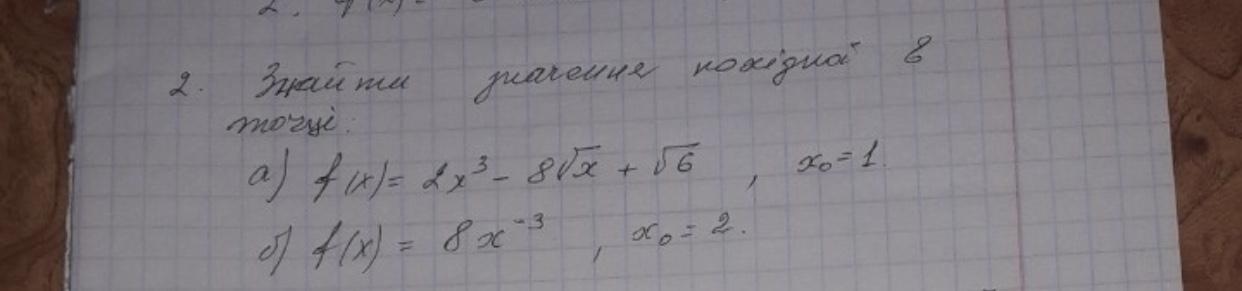 2. Знайти значення похідної в
точці:
а) f(x) = 2x³ - 8√x + √6 , x₀ = 1.
б) f(x) = 8x⁻³ , x₀ = 2.